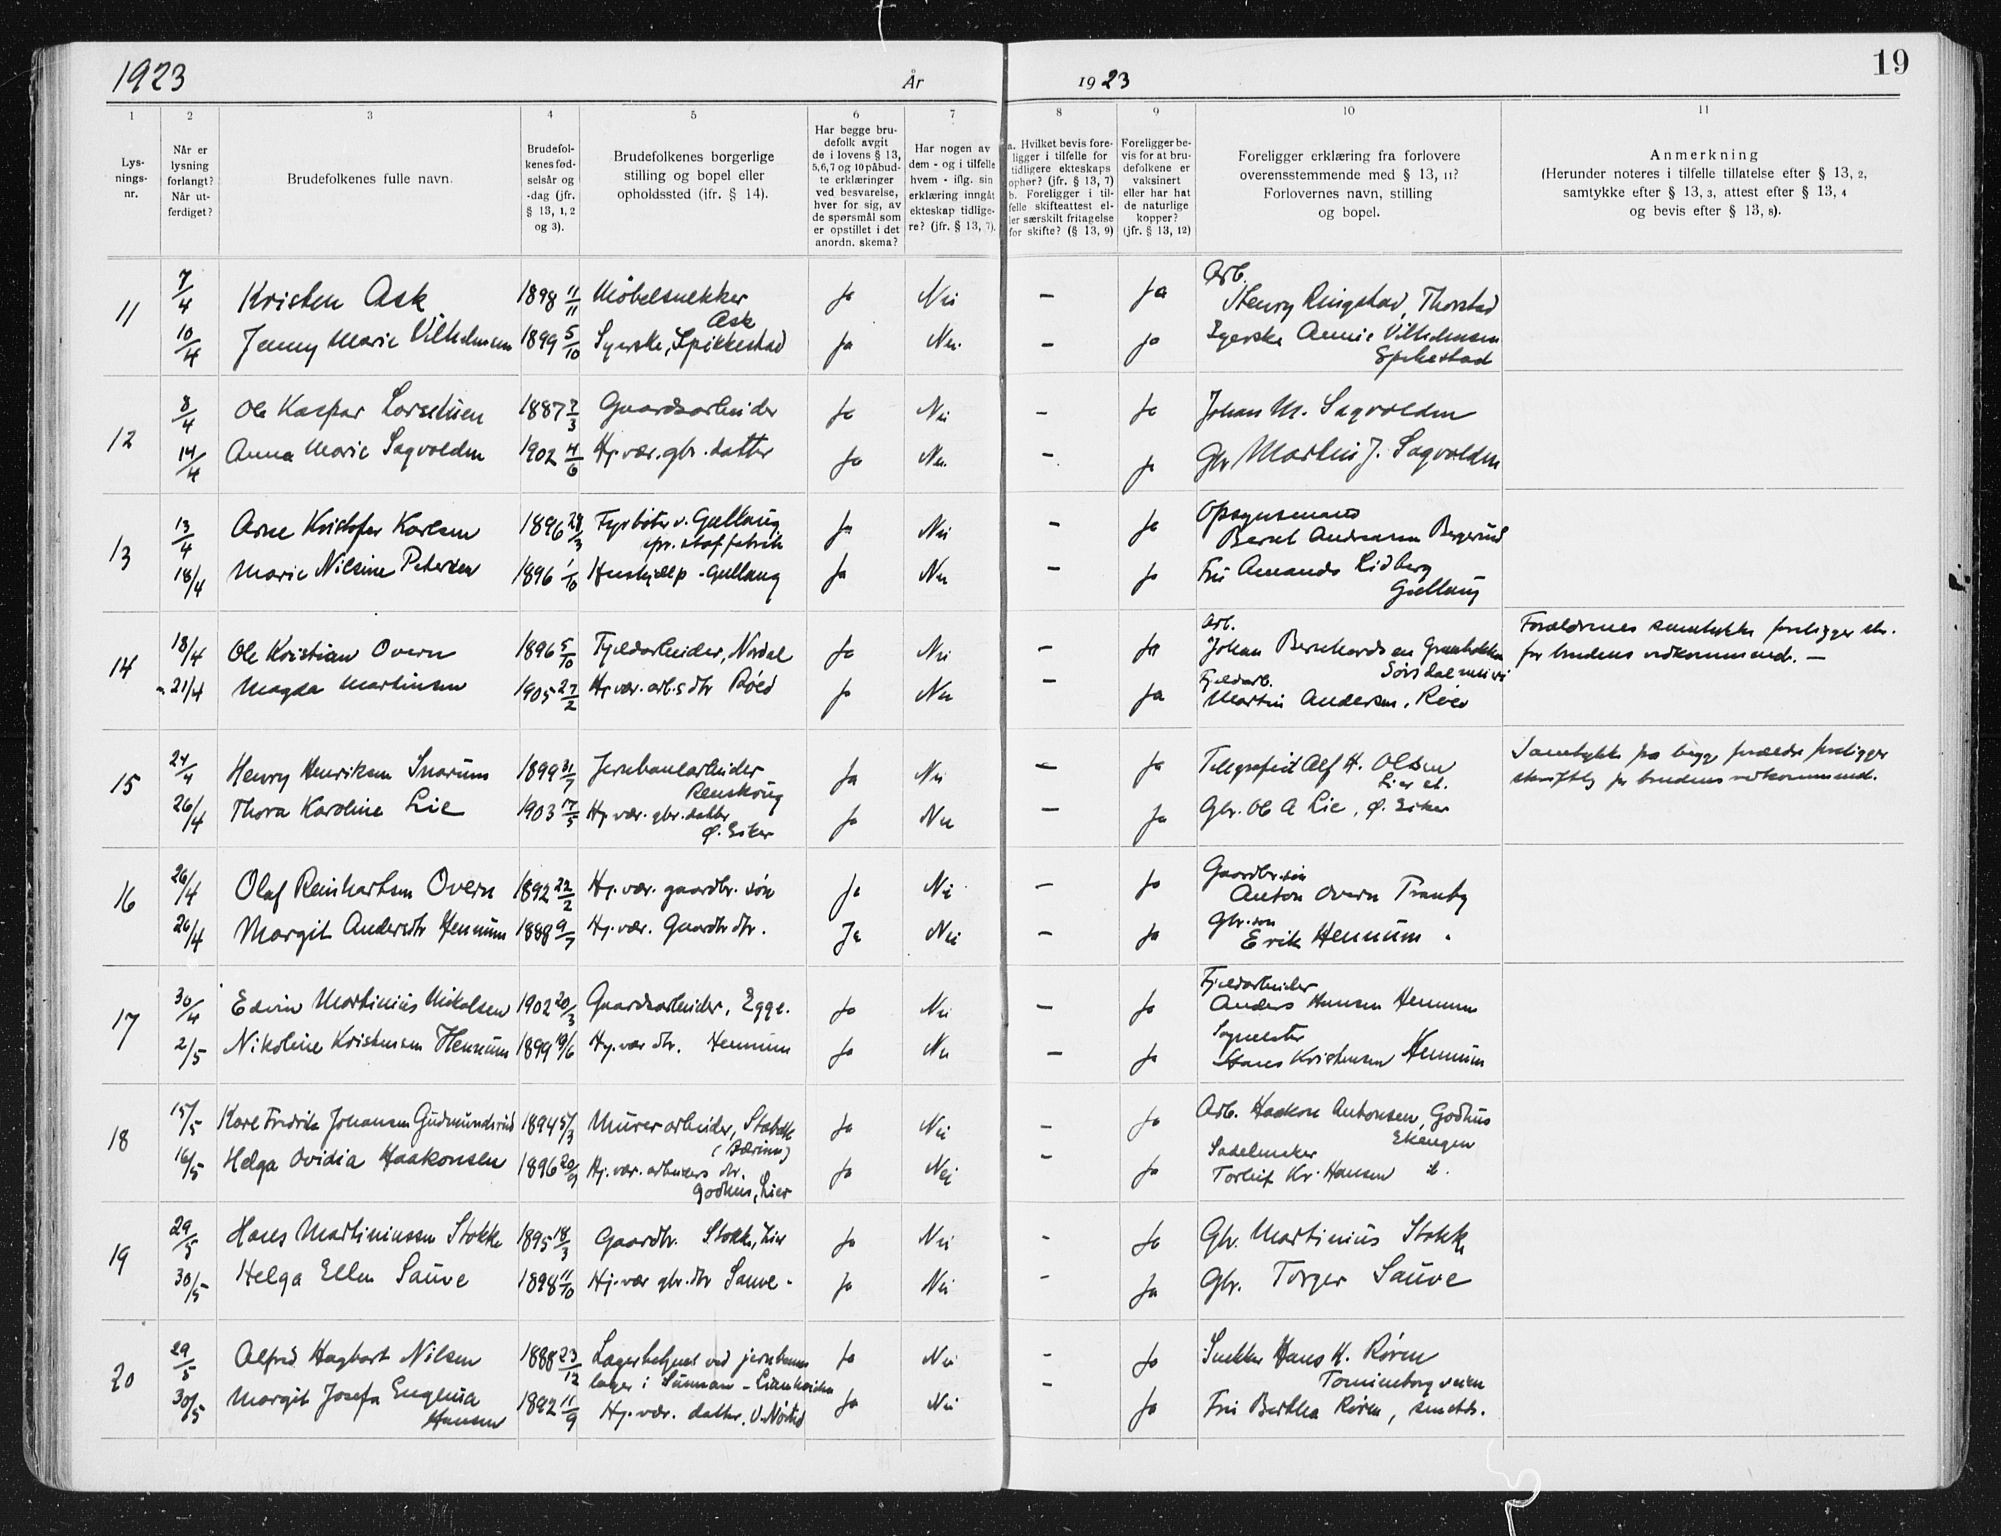 1923
År
19 23
19
1 2 3 4 5 6 7 8 9 10 11
Lys-
nings-
nr.
Når er
lysning
forlangt?
Når ut-
ferdiget?
Brudefolkenes fulle navn.
Brudefol-
kenes fød-
selsår og
-dag (jfr.
§ 13, 1, 2
og 3).
Brudefolkenes borgerlige
stilling og bopel eller
opholdssted (ifr. § 14).
Har begge bru-
defolk avgit
de i lovens § 13,
5,6,7 og 10 påbud-
te erklæringer
ved besvarelse,
hver for sig, av
de spørsmål som
er opstillet i det
anordn. skema?
Har nogen av
dem - og i tilfelle
hvem - iflg. sin
erklæring inngåt
ekteskap tidlige-
re? (jfr. § 13, 7).
a. Hvilket bevis fore-
ligger i tilfelle for
tidligere ekteskaps
ophør? (jfr. § 13, 7)
b. Foreligger i til-
felle skifteattest el-
ler særskilt fritagelse
for skifte? (§ 13, 9)
Foreligger be-
vis for at bru-
defolkene er
vaksinert
eller har hat
de naturlige
kopper?
(jfr. § 13, 12)
Foreligger erklæring fra forlovere
overensstemmende med § 13, 11?
Forlovernes navn, stilling
og bopel.
Anmerkning
(Herunder noteres i tilfelle tillatelse efter § 13, 2,
samtykke efter § 13, 3, attest efter § 13, 4
og bevis efter § 13, 8).
11
7/4 Kristen Ask 1898 11/11 Møbelsnekker Ask Ja Nei — Ja Arb. Henry Ringstad, Thorstad
10/4 Jenny Marie Vilhelmsen 1899 5/10 Syerske, Spikkestad Ja Nei — Ja Syerske Annie Vilhelmsen Spikestad
12
8/4 Ole Kaspar Lorentsen 1887 7/3 Gaardsarbeider Ja Nei — Ja Johan M. Sagvolden
14/4 Anna Marie Sagvolden 1902 4/6 Hj. vær. gbr. datter Ja Nei — Ja Gbr Martin J. Sagvolden
13
13/4 Arne Kristofer Karlsen 1896 29/3 Fyrbøter v. Gullaug spr. stof fabrik Ja Nei — Ja Opsynsmand Bernt Andreasen Bergerud
18/4 Marie Nilsine Petersen 1896 1/10 Hushjelp - Gullaug Ja Nei — Ja Fru Amanda Lidberg Gullaug
14
18/4 Ole Kristian Overn 1896 5/10 Fjeldarbeider, Nordal Ja Nei — Ja Arb. Johan Bernhardsen
21/4 Magda Martinsen 1905 27/2 Hj. vær. arb.s dtr Røed Ja Nei — Ja Fjeldarb. Martin Andersen, Røed
Forældrenes samtykke foreligger skr.
for brudens vedkommende. —
15
24/4 Henry Henriksen Snarum 1899 31/7 Jernbanearbeider Renskoug Ja Nei — Ja Telegrafist Alf H. Olsen Lier st.
26/4 Thora Karoline Lie 1903 17/5 Hj. vær. gbr. datter Ø. Eiker Ja Nei — Ja Gbr. Ole A Lie, Ø. Eiker
Samtykke fra begge forældre foreligger
skriftlig for brudens vedkommende.
16
26/4 Olaf Reinhartsen Overn 1892 22/2 Hj. vær. gaardbr. søn Ja Nei — Ja Gaardbr. søn Anton Overn Tranby
26/4 Margit Andersdtr Hennum 1888 9/7 Hj. vær. Gaardbr dtr. Ja Nei — Ja Gbr. søn Erik Hennum.
17
30/4 Edvin Martinius Nikolsen 1902 20/3 Gaardsarbeider, Egge. Ja Nei — Ja Fjeldarbeider Anders Hansen Hennum
2/5 Nikoline Kristensen Hennum 1899 19/6 Hj. vær dtr. Hennum Ja Nei — Ja Sagmester Hans Kristensen Hennum
18
15/5 Karl Fredrik Johansen Gudmundsrud 1894 5/3 Murerarbeider, Stabekk (Bærum) Ja Nei — Ja Arb. Haakon Antonsen, Godhus Ekengen
16/5 Helga Ovidia Haakonsen 1896 20/9 Hj. vær. arbeiders dtr. Godhus, Lier Ja Nei — Ja Sadelmaker Torleif Kr. Hansen
19
29/5 Hans Martiniussen Stokke 1895 18/3 Gaardbr. Stokke, Lier Ja Nei - Ja Gbr. Martinius Stokke
30/5 Helga Ellen Sauve 1898 11/10 Hj. vær gbr. dtr Sauve - Ja Nei - Ja Gbr. Torger Sauve
20
29/5 Alfred Hagbart Nilsen 1888 23/12 Lagerbetjent ved jernbanens lager i Sunnan - Ja Nei - Ja Snekker Hans K. Røren Tomineborgveien
30/5 Margit Josefa Eugenia Hansen 1892 11/9 Hj. vær. datter. Ja Nei - Ja Fru Bertha Røren, smstds.